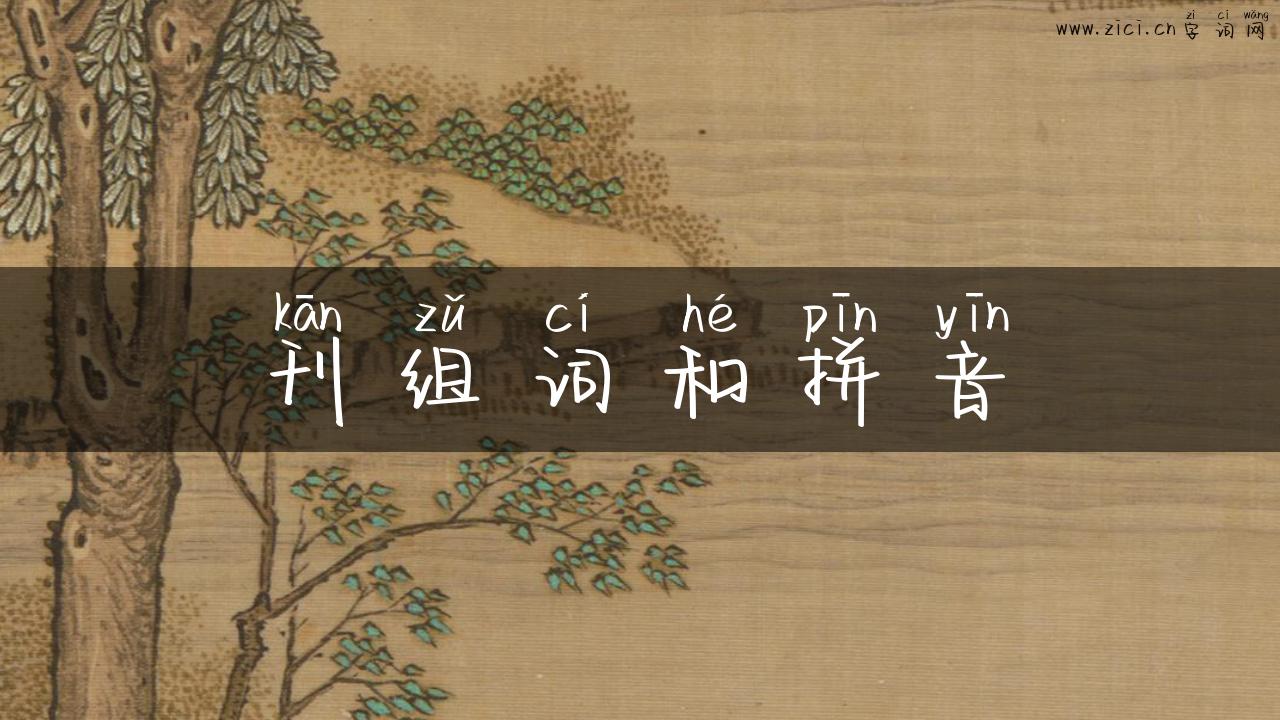 zì cí wǎng
www.zici.cn 字词网
kān zǔ cí hé pīn yīn
刊组词和拼音